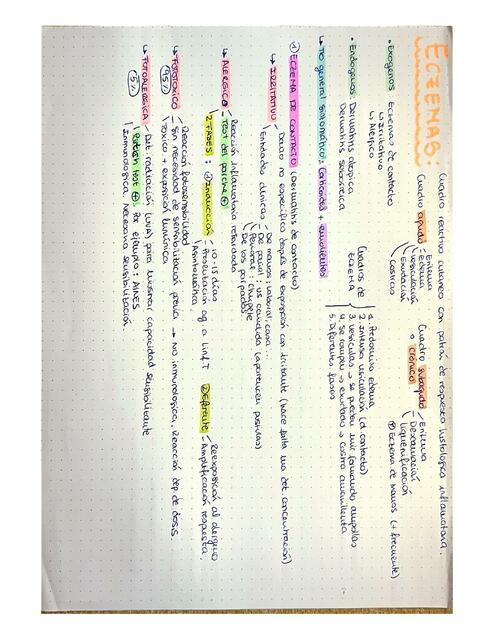 ECZEMAS: Cuadro reactivo cutáneo con patrón de respuesta histológico inflamatoria.
Cuadro agudo
Eritema
Edema
Vesiculación
Exudación
Costras
Cuadro subagudo
o crónico
Eritema
Descamación
Liquenificación
Eczema de manos (+ frecuente)
• Exógenos: Eczemas de contacto
↳ Irritativo
↳ Alérgico
• Endógenos: Dermatitis atópica
Dermatitis seborreica
Cuadros de
ECZEMA
1. Eritema edema
2. intensa vesiculación (d. contacto)
3. vesículas → se pueden unir formando ampollas
4. se rompen → exudado → costra amarillenta
5. Diferentes fases
• TTO general sintomático: Corticoides + emolientes
① ECZEMA DE CONTACTO (Dermatitis de contacto)
↳ IRRITATIVO
Daño no específico después de exposición con irritante (hace falta una det. concentración)
Entidades clínicas
De manos: laboral, casa...
De pañal: us cerrada (aparecen pústulas)
Peribucal: chupete
De los párpados
↳ ALÉRGICO
Reacción inflamatoria retardada
Test del parche ⊕
2 FASES: ① Inducción
10-15 días
Presentación ag a linf. T
Asintomática
② Eferente
Reexposición al alérgeno
Amplificación respuesta.
↳ FOTOTÓXICO
(95%)
Reacción fotosensibilidad
Sin necesidad de sensibilización previa → No inmunológica, Reacción dep de dosis.
Tóxico + exposición lumínica
↳ FOTOALÉRGICA
(5%)
Det. radiación (UVA) para mostrar capacidad sensibilizante
Patch test ⊕ Por ejemplo: AINES
Inmunológica. Necesaria sensibilización